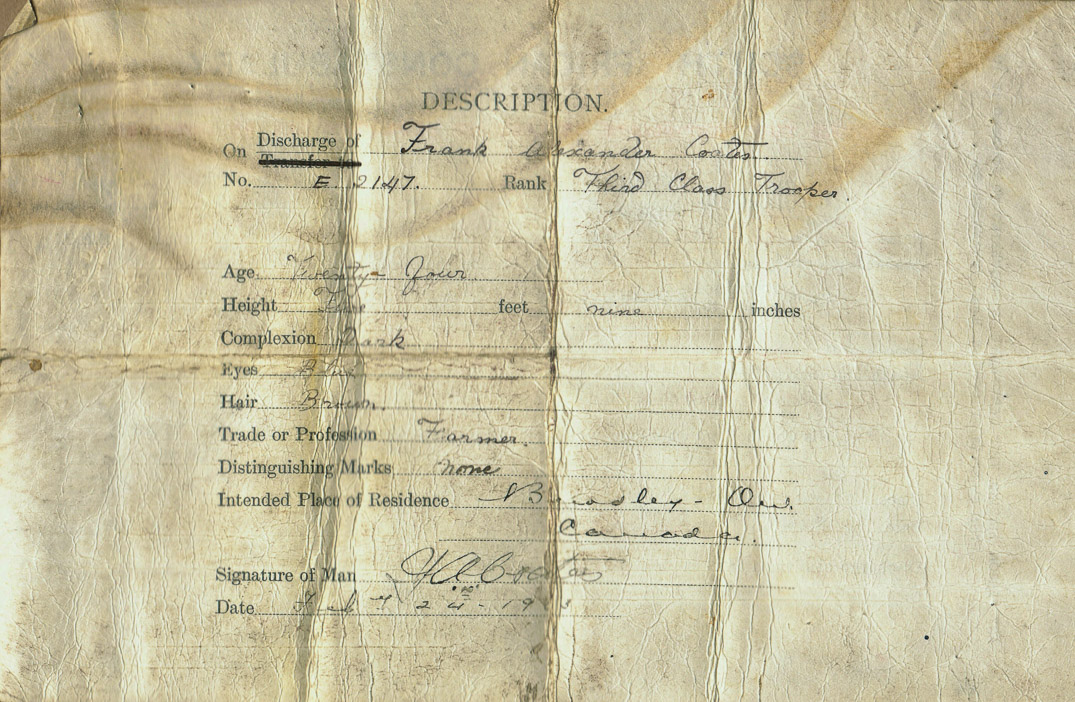 DESCRIPTION.
On Discharge of Frank Alexander Coates
Transfer
No. E 2147. Rank Third Class Trooper.
Age Twenty-Four
Height Five feet nine inches
Complexion Dark
Eyes Blue
Hair Brown.
Trade or Profession Farmer.
Distinguishing Marks none
Intended Place of Residence
Canada.
Signature of Man F A Coates
Date Feb 24th - 19